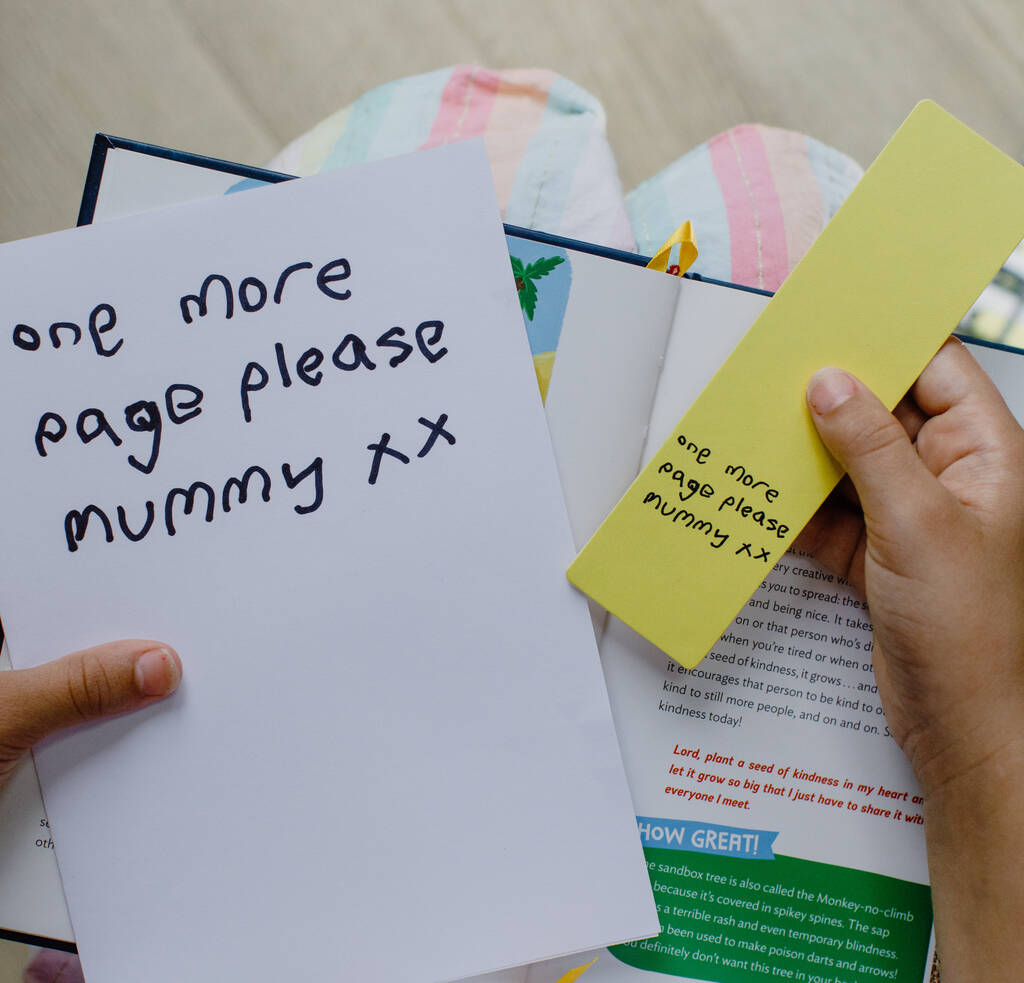 one more
page please
mummy xx
one more
page please
mummy xx
ery creative
you to spread: the
and being nice. It takes
on or that person who's
when you're tired or when
seed of kindness, it grows... and
it encourages that person to be kind to
kind to still more people, and on and on.
kindness today!
Lord, plant a seed of kindness in my heart
let it grow so big that I just have to share it
everyone I meet.
HOW GREAT!
sandbox tree is also called the Monkey-no-climb
because it's covered in spikey spines. The sap
a terrible rash and even temporary blindness.
been used to make poison darts and arrows!
definitely don't want this tree in your